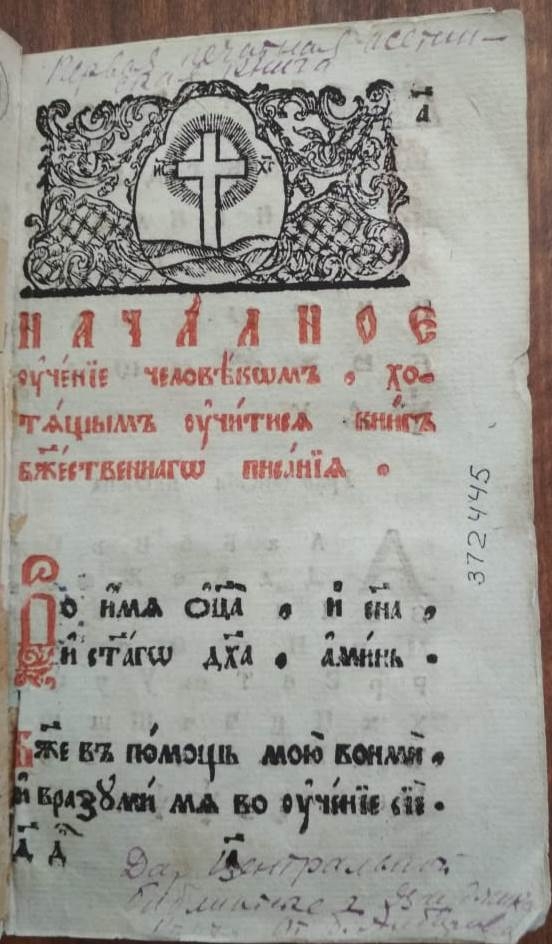 Первая печатная осетин-
ская книга
а҃
ІС ХС
НАЧА́ЛНОЕ
оу҆че́нїе человѣ́кѡмъ , хо-
тѧ́щымъ оу҆чи́тисѧ кни́гъ
бж҃е́ственнагѡ писа́нїѧ .
Во и҆́мѧ ѻ҆ц҃а̀ , и҆ сн҃а ,
и҆ ст҃а́гѡ дх҃а . а҆ми́нь .
Бж҃е въ по́мощь мою̀ вонмѝ ,
и҆ вразꙋми́ мѧ во оу҆че́нїе сїѐ .
372445
Дар Центральной
библиотеке г.
от Б. Алборова